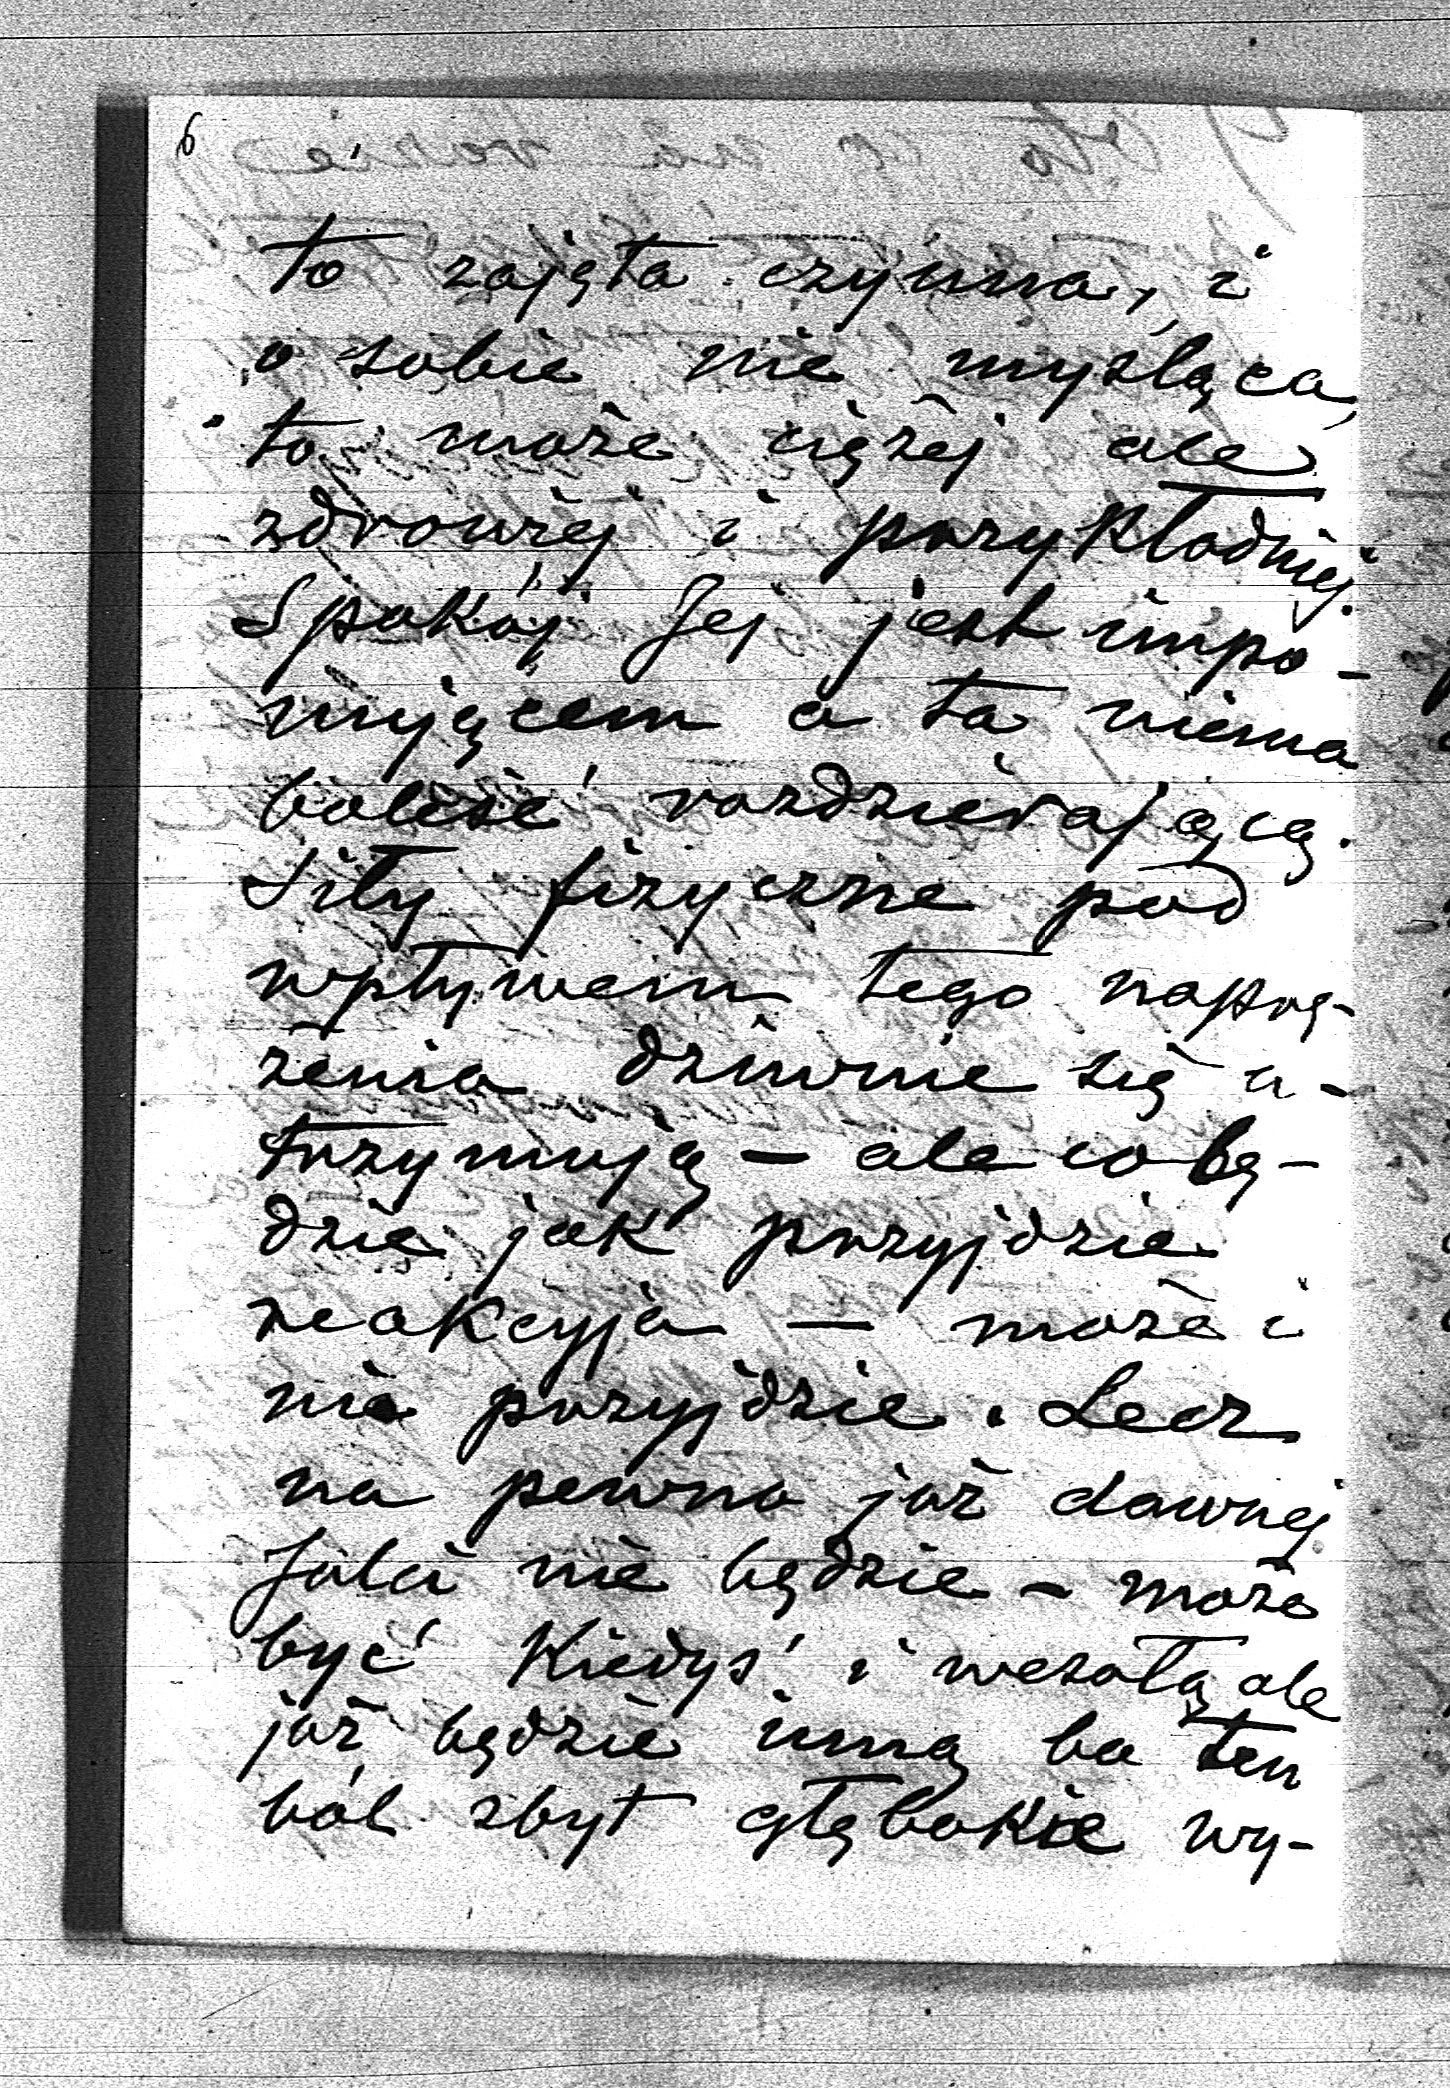 6
to zajęta czynna, i
o sobie nie myśląca,
to może ciężej ale
zdrowiej i przykładniej.
Spokój Jej jest impo-
nującem a ta niema
boleść rozdzierającą.
Siły fizyczne pod
wpływem tego naprę-
żenia dziwnie się u-
trzymują – ale co bę-
dzie jak przyjdzie
reakcyja – może i
nie przyjdzie. Lecz
na pewno już dawnej
Julci nie będzie – może
być kiedyś i wesołą ale
już będzie inną bo ten
ból zbyt głębokie wy-